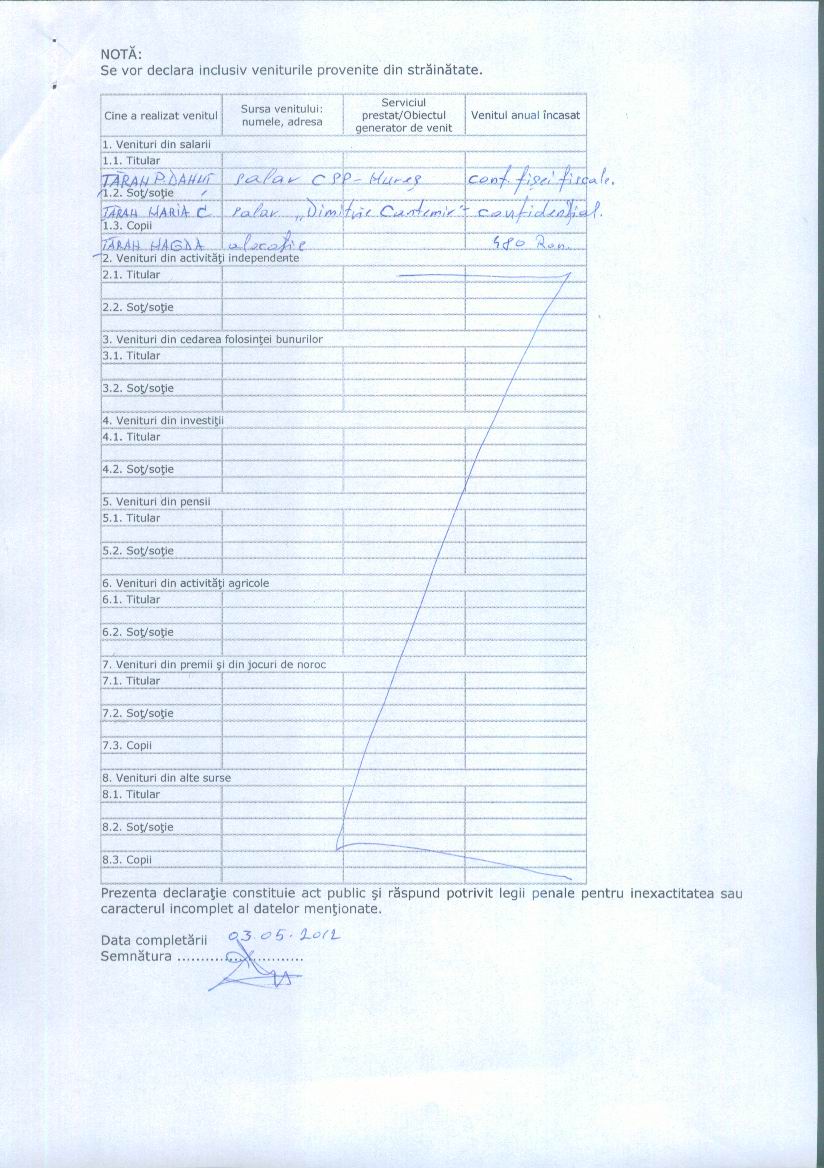 NOTĂ:
Se vor declara inclusiv veniturile provenite din străinătate.
Cine a realizat venitul Sursa venitului: numele, adresa Serviciul prestat/Obiectul generator de venit Venitul anual încasat
1. Venituri din salarii
1.1. Titular
salar CPP - Mureş conf. fişei fiscale.
1.2. Soţ/soţie
MARIA C. salar „Dimitrie Cantemir" - confidenţial.
1.3. Copii
MAGDA alocaţie 480 Ron.
2. Venituri din activităţi independente
2.1. Titular
2.2. Soţ/soţie
3. Venituri din cedarea folosinţei bunurilor
3.1. Titular
3.2. Soţ/soţie
4. Venituri din investiţii
4.1. Titular
4.2. Soţ/soţie
5. Venituri din pensii
5.1. Titular
5.2. Soţ/soţie
6. Venituri din activităţi agricole
6.1. Titular
6.2. Soţ/soţie
7. Venituri din premii şi din jocuri de noroc
7.1. Titular
7.2. Soţ/soţie
7.3. Copii
8. Venituri din alte surse
8.1. Titular
8.2. Soţ/soţie
8.3. Copii
Prezenta declaraţie constituie act public şi răspund potrivit legii penale pentru inexactitatea sau
caracterul incomplet al datelor menţionate.
Data completării 03.05.2012
Semnătura ..............................